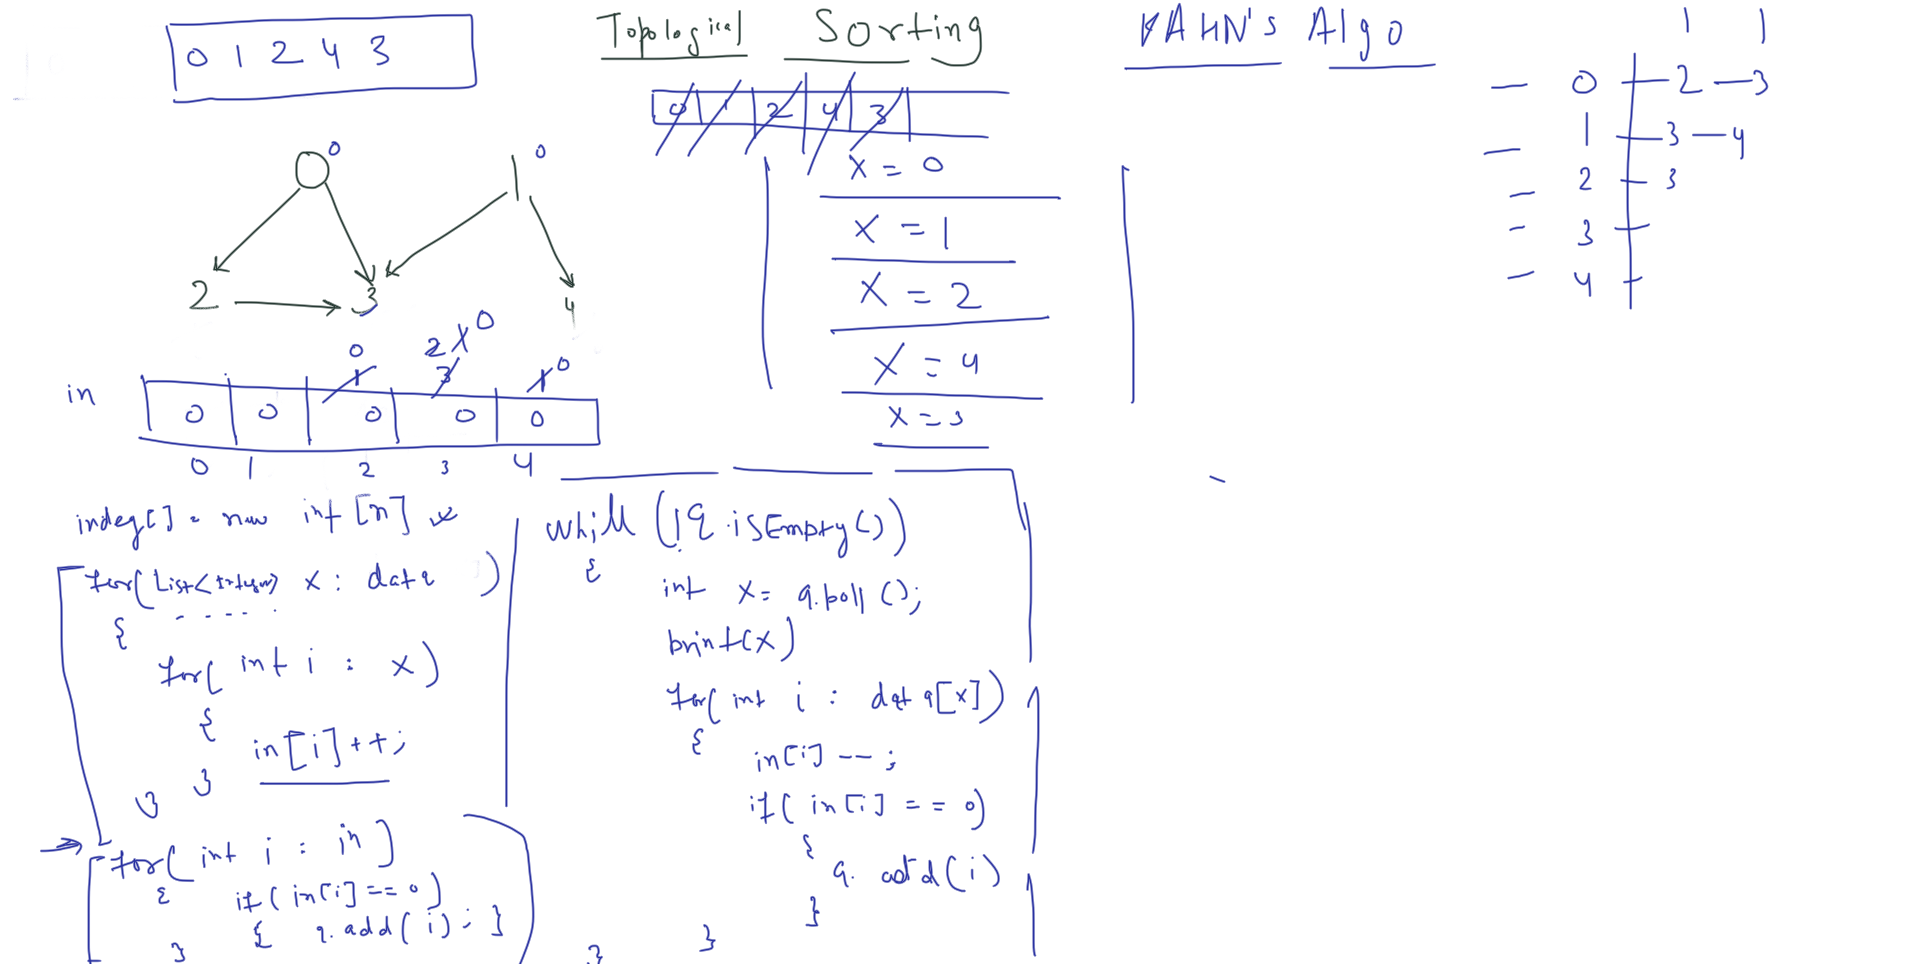 0 1 2 4 3
Topological Sorting
KAHN's Algo
0 1 2 4 3
1 1
0 2 3
1 3 4
2 3
3
4
0 0
1 0
2 3 4
x = 0
x = 1
x = 2
x = 4
x = 3
0 2 1 0
1 3 1 0
in 0 0 0 0 0
0 1 2 3 4
indeg[] = new int [n]
for(List<Integer> x : data )
{
for( int i : x)
{
in[i]++;
}
}
for( int i : in )
{ if( in[i] == 0)
{ q.add( i); }
}
while (!q.isEmpty())
{
int x = q.poll ();
print(x)
for( int i : data[x])
{
in[i] --;
if( in[i] == 0)
{
q. add(i)
}
}
}